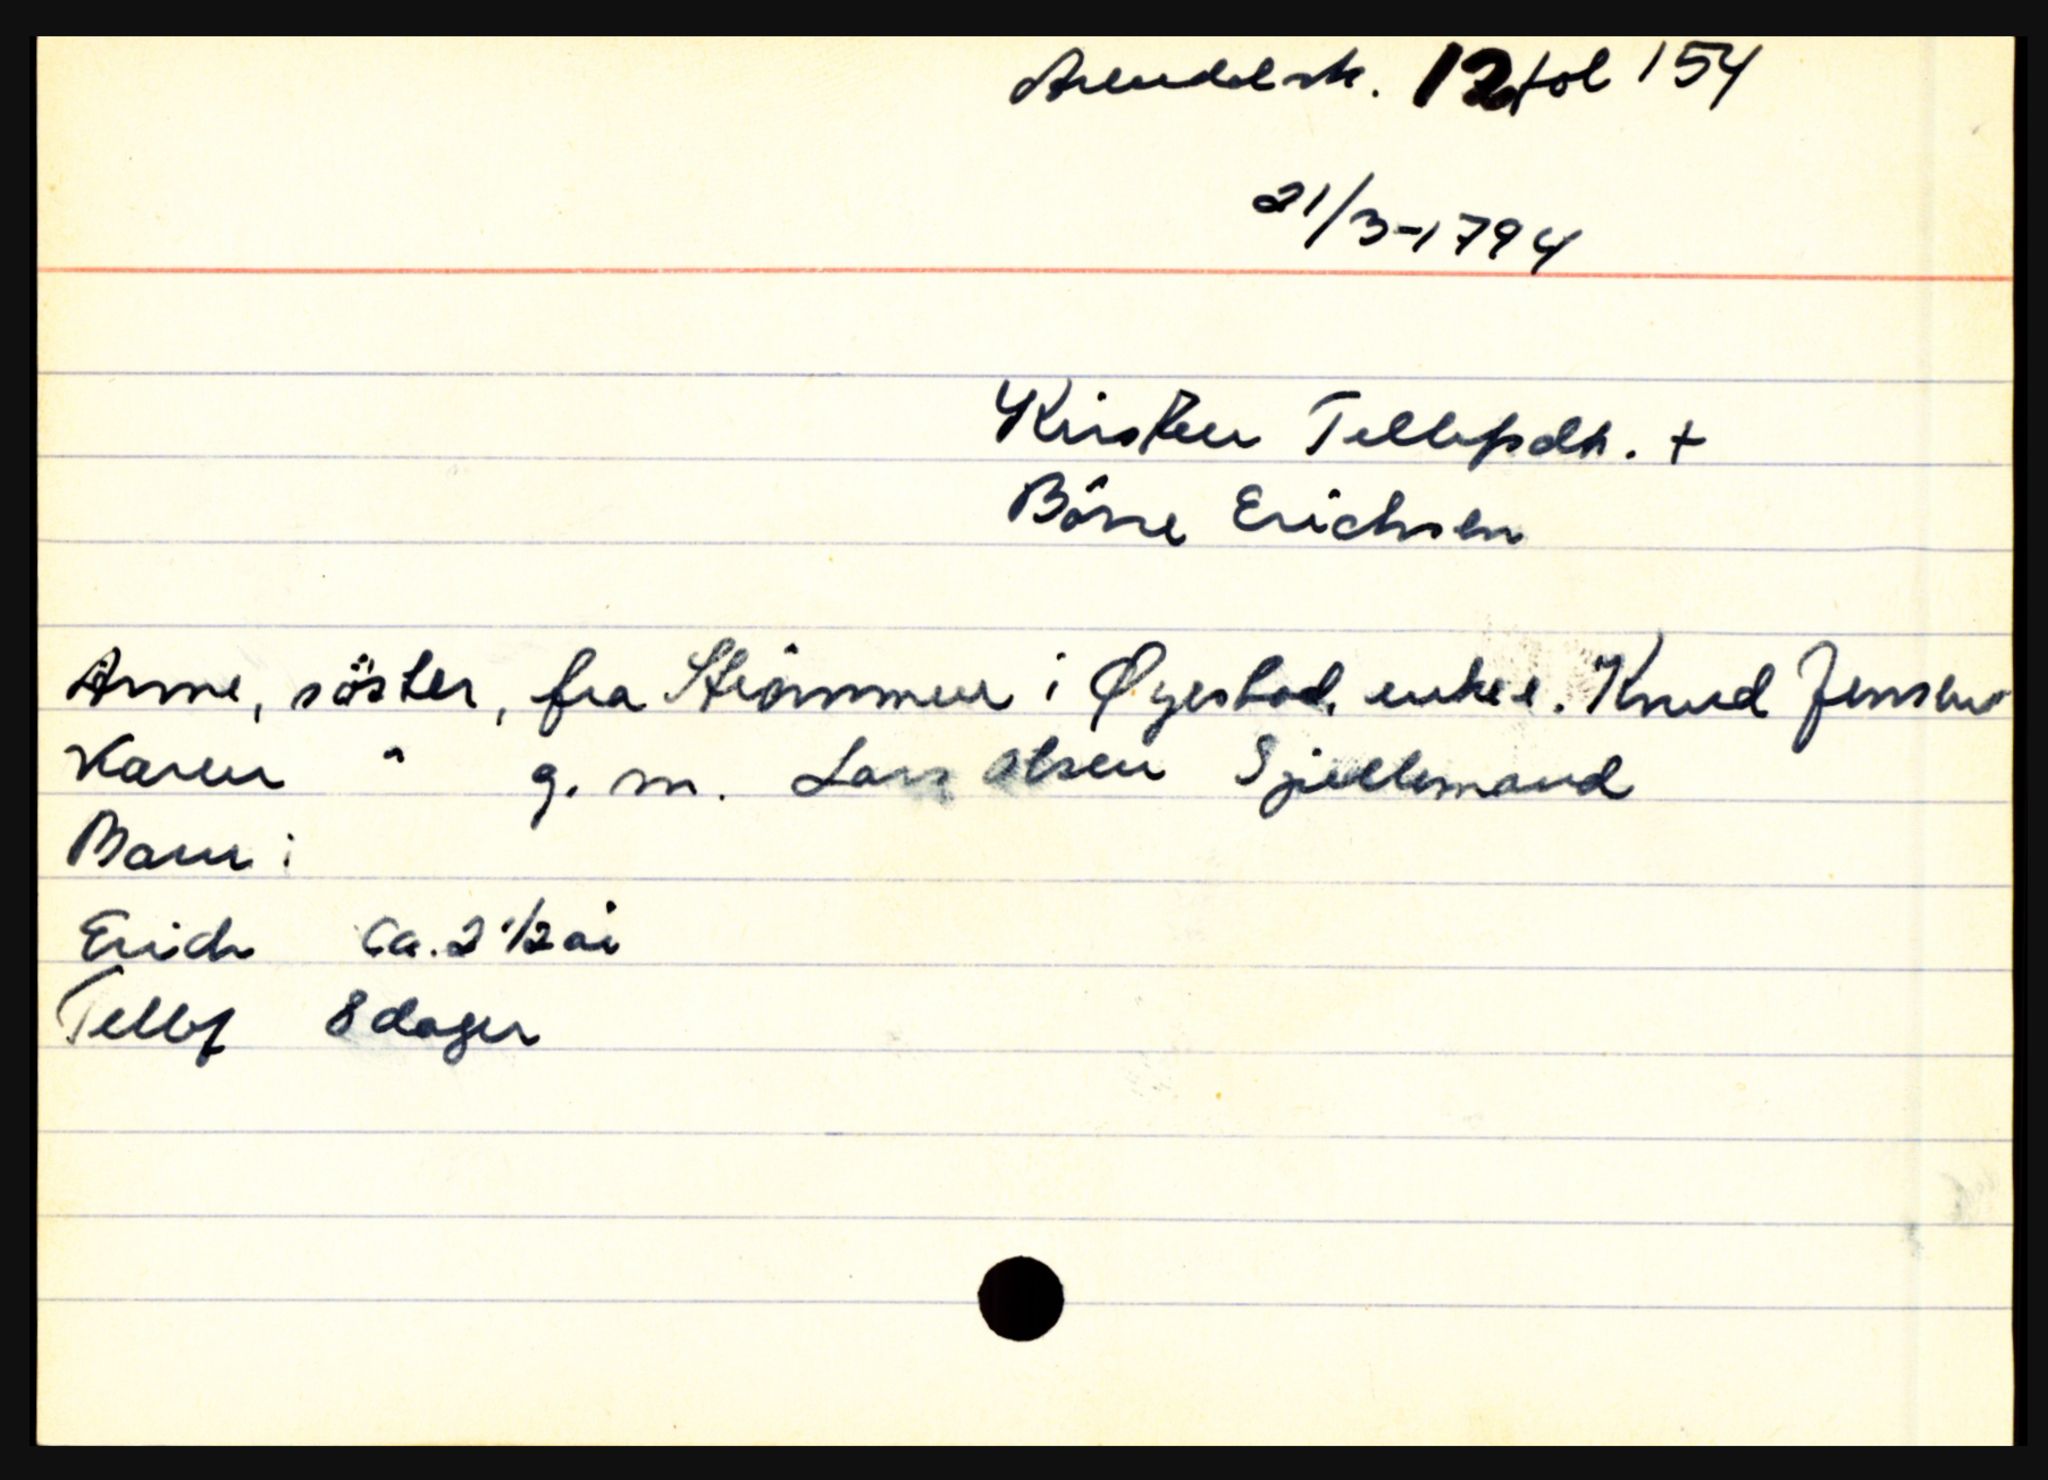 Arendalsk. 12 fol 154
21/3-1794
Kirsten Tellefsdtr. +
Börre Erichsen
Anne, söster, fra Strömmen i Øyestad, enke e. Knud Jensen
Karen " g. m. Lars Olsen Sjellemand
Barn:
Erich ca. 2 1/2 år
Tellef 8 dager